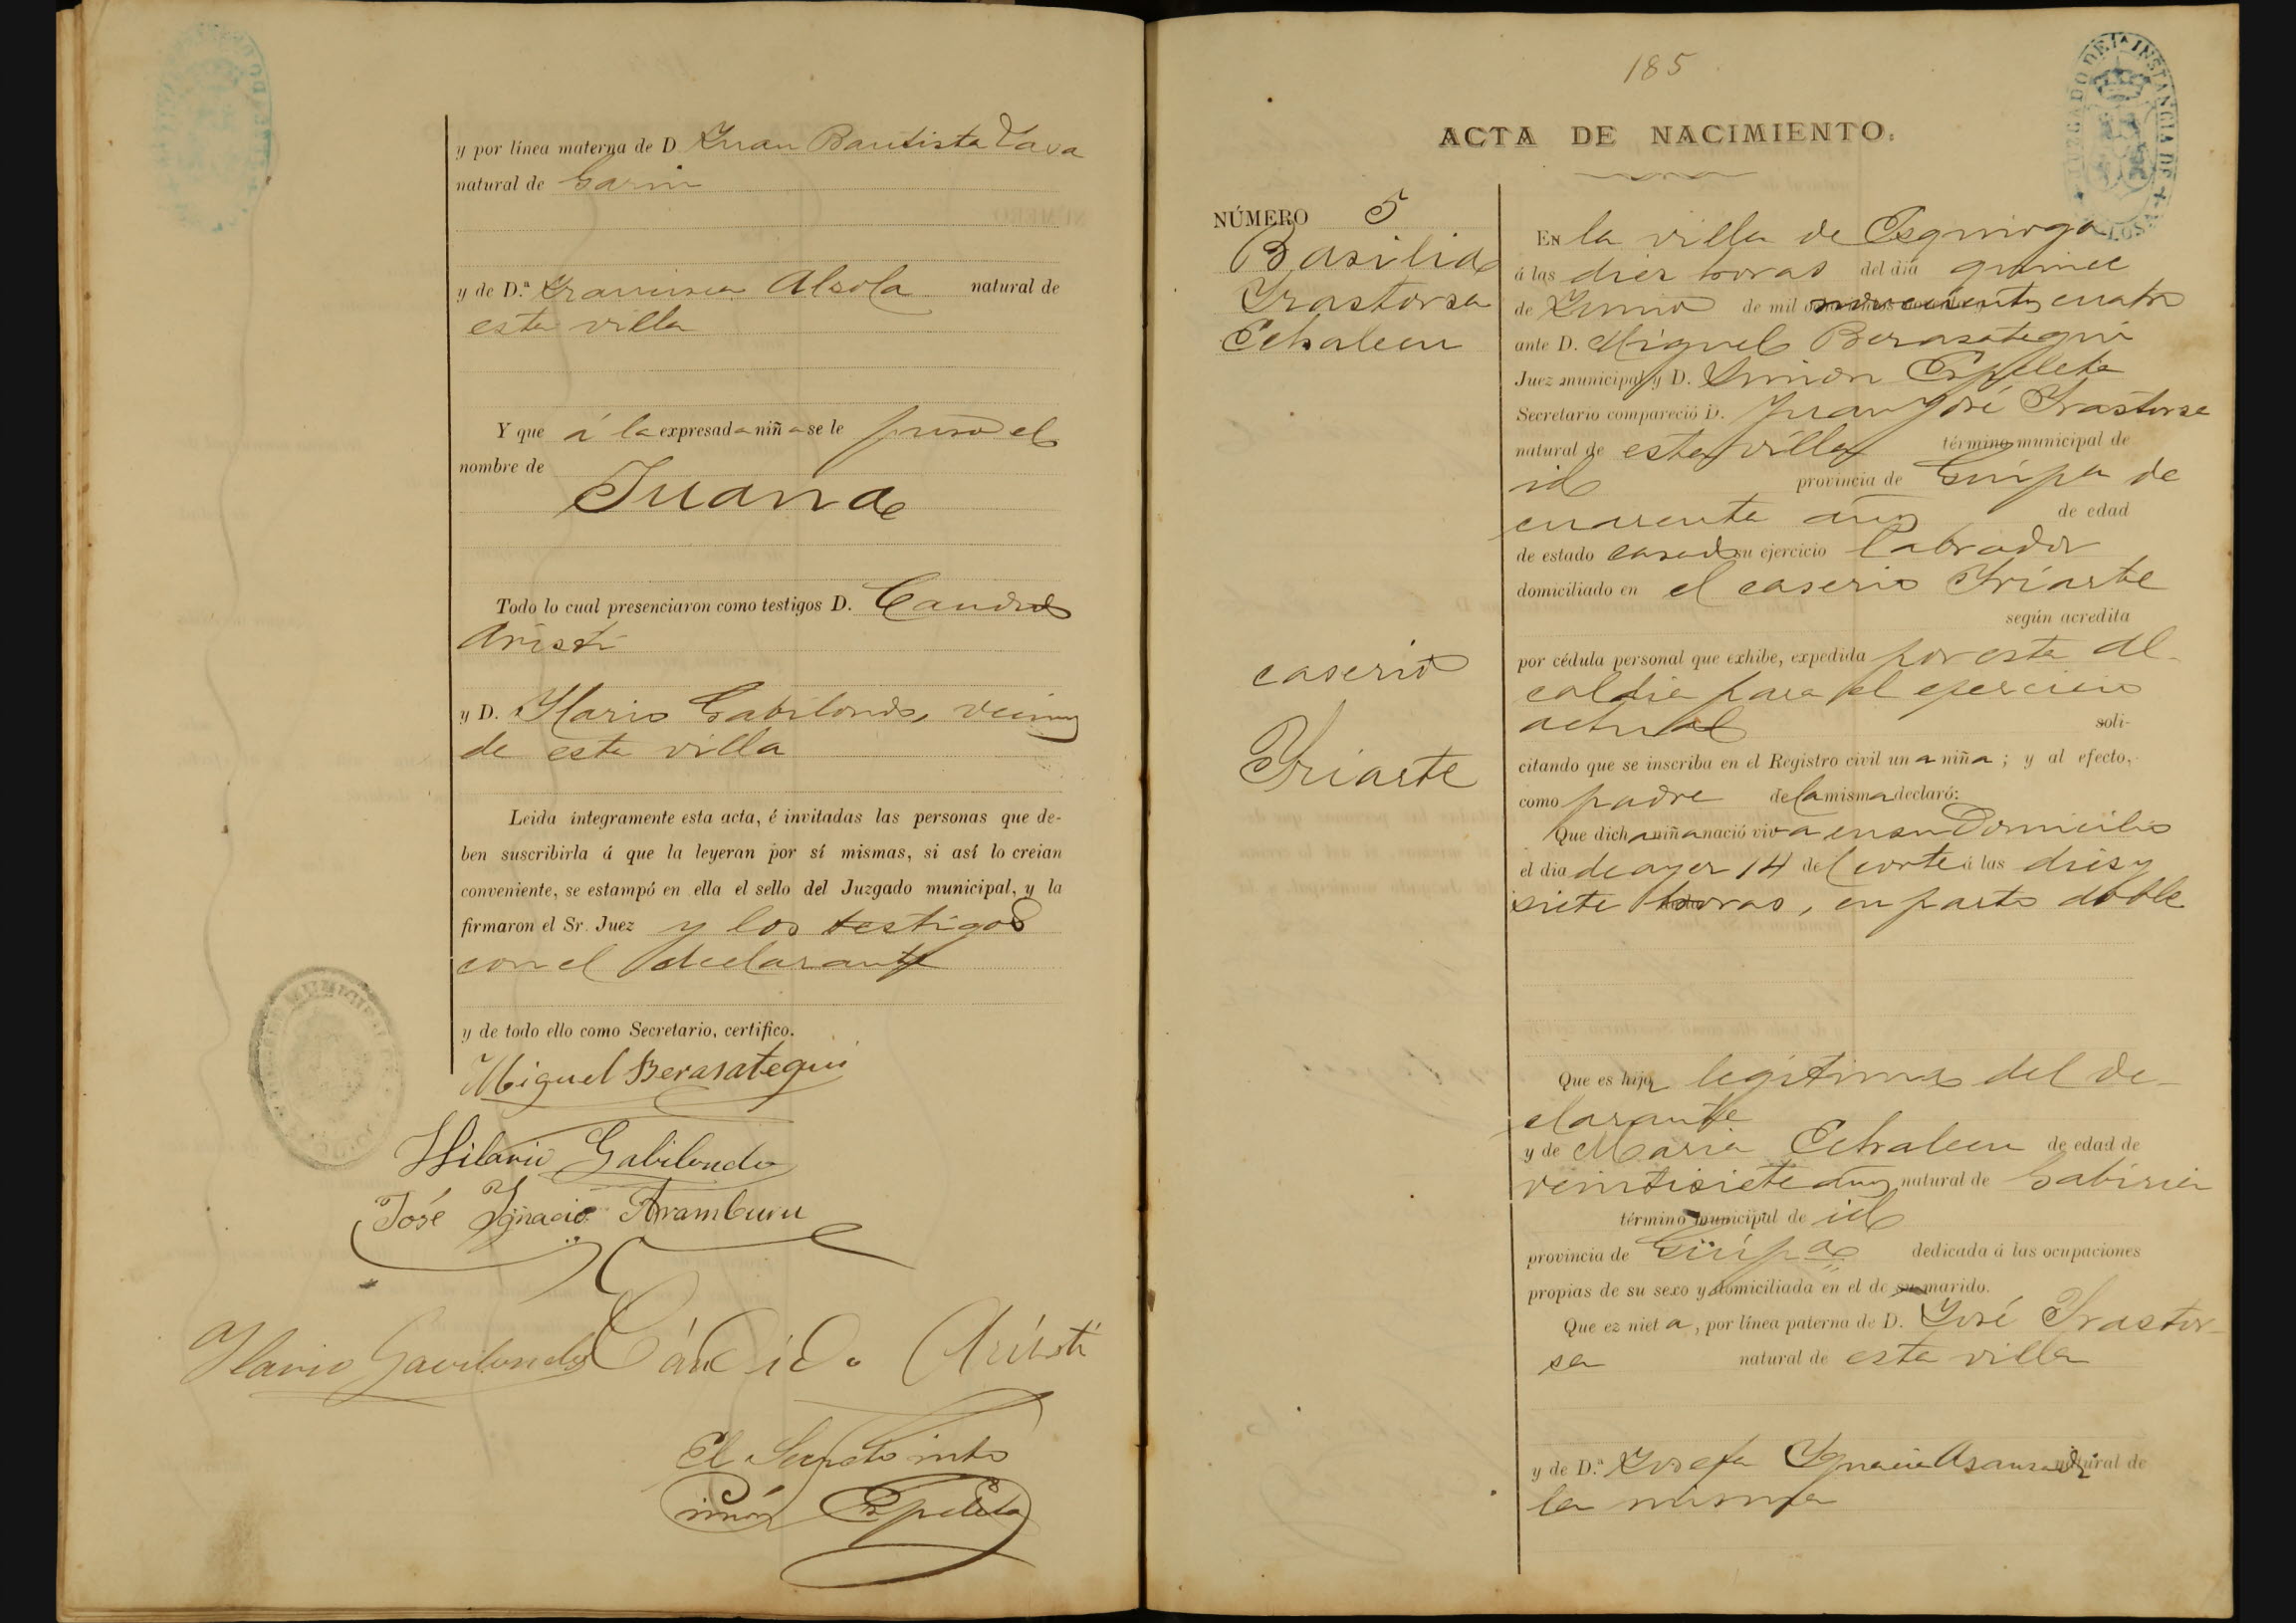 y por línea materna de D. Juan Bautista Lasa
natural de Garin
y de D.ª Francisca Alsola natural de
esta villa
Y que á la expresada niña se le puso el
nombre de
Juana
Todo lo cual presenciaron como testigos D. Candido
Aristi
y D. Ilario Gabilondo, vecinos
de esta villa
Leida íntegramente esta acta, é invitadas las personas que de-
ben suscribirla á que la leyeran por sí mismas, si así lo creian
conveniente, se estampó en ella el sello del Juzgado municipal, y la
firmaron el Sr. Juez y los testigos
con el declarante
y de todo ello como Secretario, certifico.
Miguel Berasategui
Hilario Gabilondo
José Ygnacio Aramburu
Ilario Gavilondo Cándido Aristi
El Secreto into
Simón Ezpeleta
185
ACTA DE NACIMIENTO.
JUZGADO DE 1ª INSTANCIA DE
NÚMERO 5
Basilia
Yrastorsa
Echaleeu
caserio
Yriarte
EN la villa de Ezquioga
á las diez horas del día quince
de Junio de mil novecientos cuatro
ante D. Miguel Berasategui
Juez municipal y D. Simon Ezpeleta
Secretario compareció D. Juan José Yrastorsa
natural de esta villa término municipal de
id provincia de Guipa de
cuarenta años de edad
de estado casado su ejercicio labrador
domiciliado en el caserio Yriarte
según acredita
por cédula personal que exhibe, expedida por esta al-
caldia para el ejercicio
actual soli-
citando que se inscriba en el Registro civil una niña; y al efecto,
como padre de la misma declaró:
Que dicha niña nació viva en su Domicilio
el dia de ayer 14 del corte á las dies y
siete horas, en parto doble
Que es hija legitima del de-
clarante
y de Maria Echaleeu de edad de
veintisiete años natural de Gabiria
término municipal de id
provincia de Guipa dedicada á las ocupaciones
propias de su sexo y domiciliada en el de su marido.
Que es nieta, por línea paterna de D. José Yrastor-
sa natural de esta villa
y de D.ª Josefa Ygnacia natural de
la misma